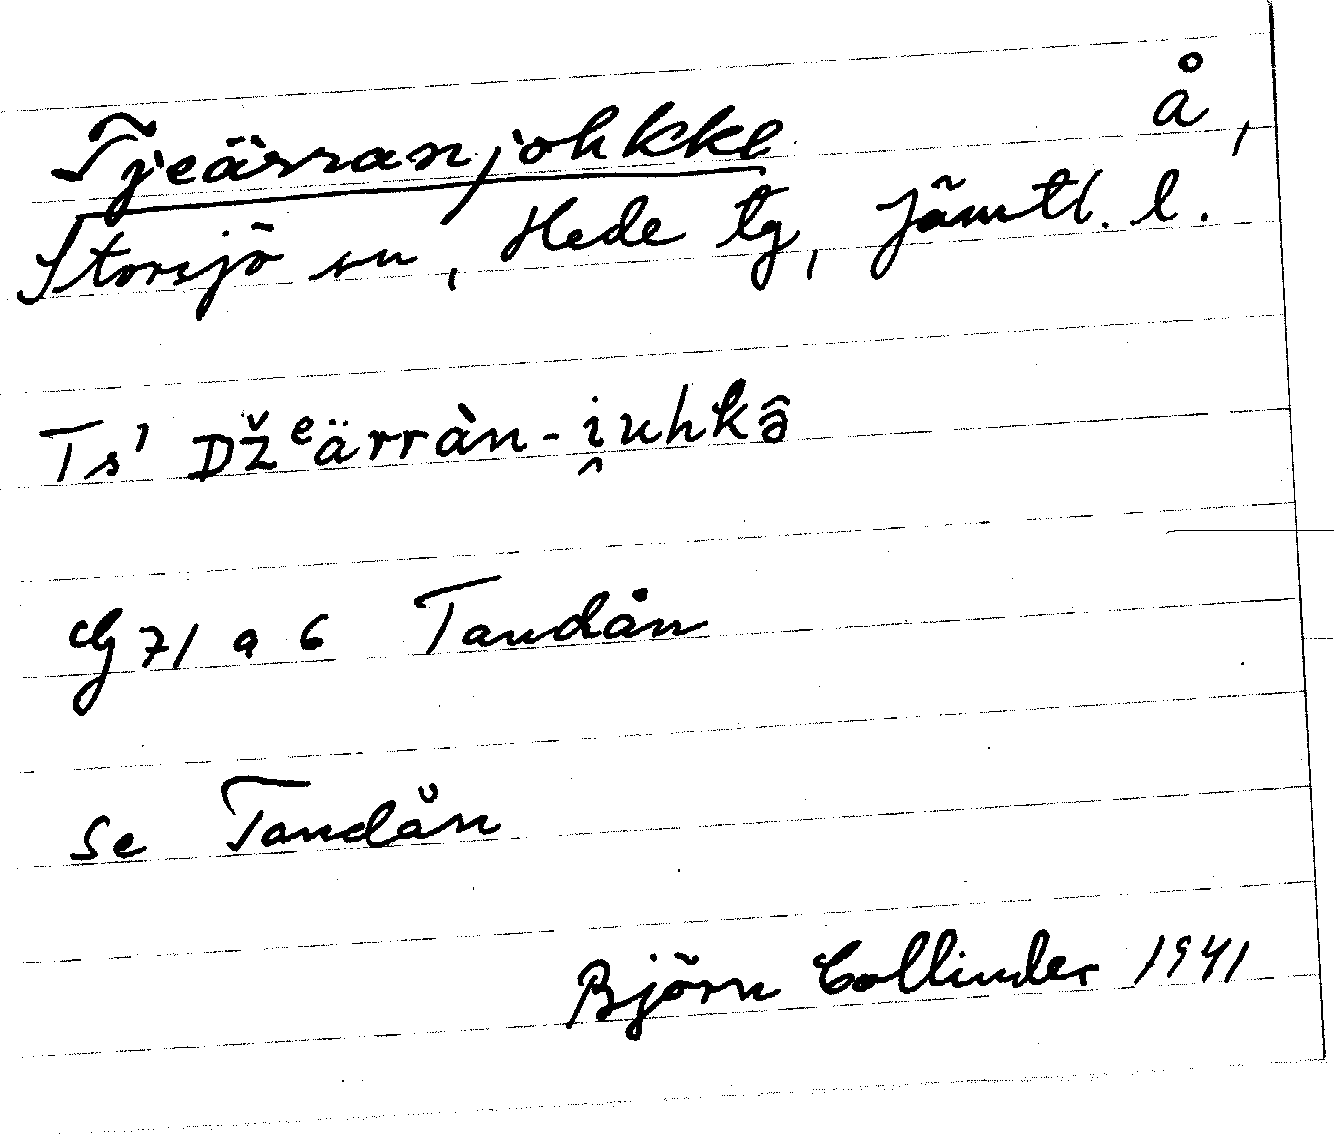 Tjeärranjohkke å,
Storsjö sn, Hede tg, Jämtl. l.
Ts' Džᵉärràn-i̭uhkə̂
Gg 71 a 6 Tandån
se Tandån
Björn Collinder 1941